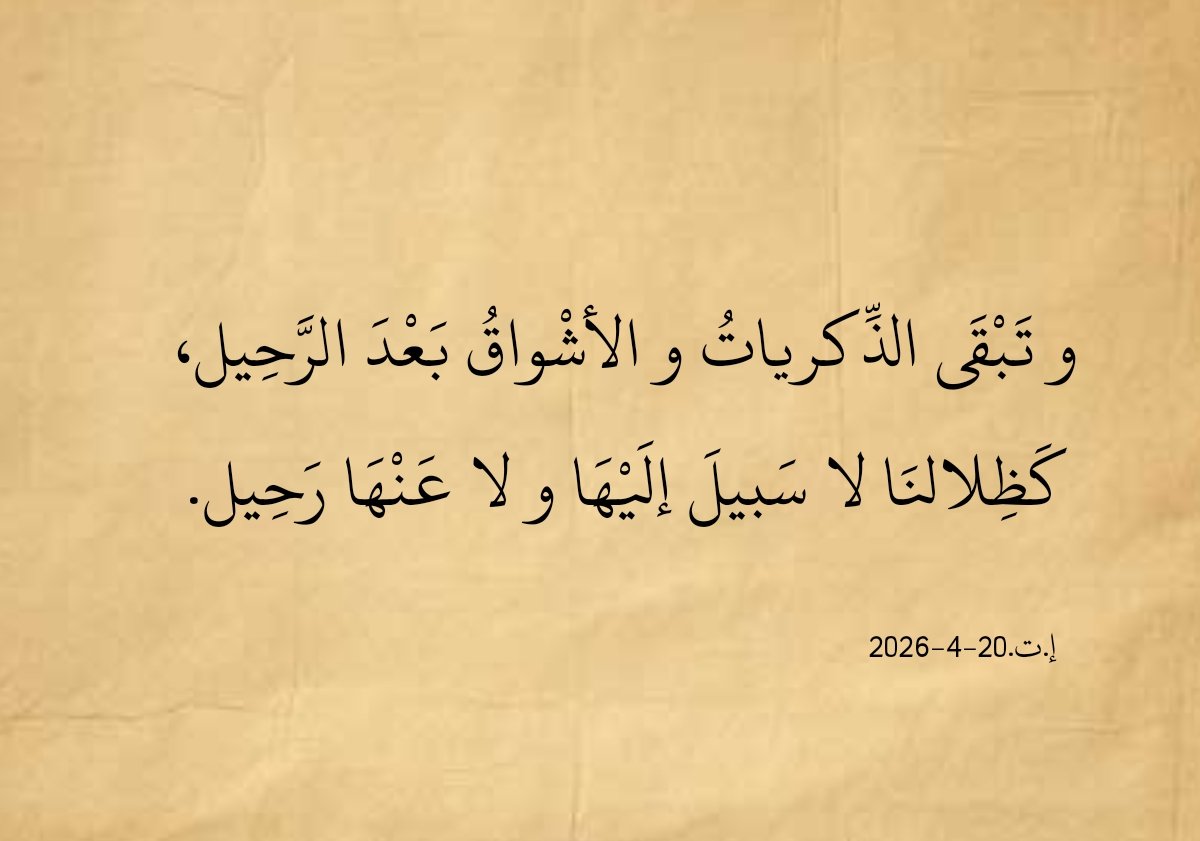 و تَبْقَى الذِّكرياتُ و الأشْواقُ بَعْدَ الرَّحِيل،
كَظِلالنَا لا سَبيلَ إلَيْهَا و لا عَنْهَا رَحِيل.
إ.ت.20-4-2026